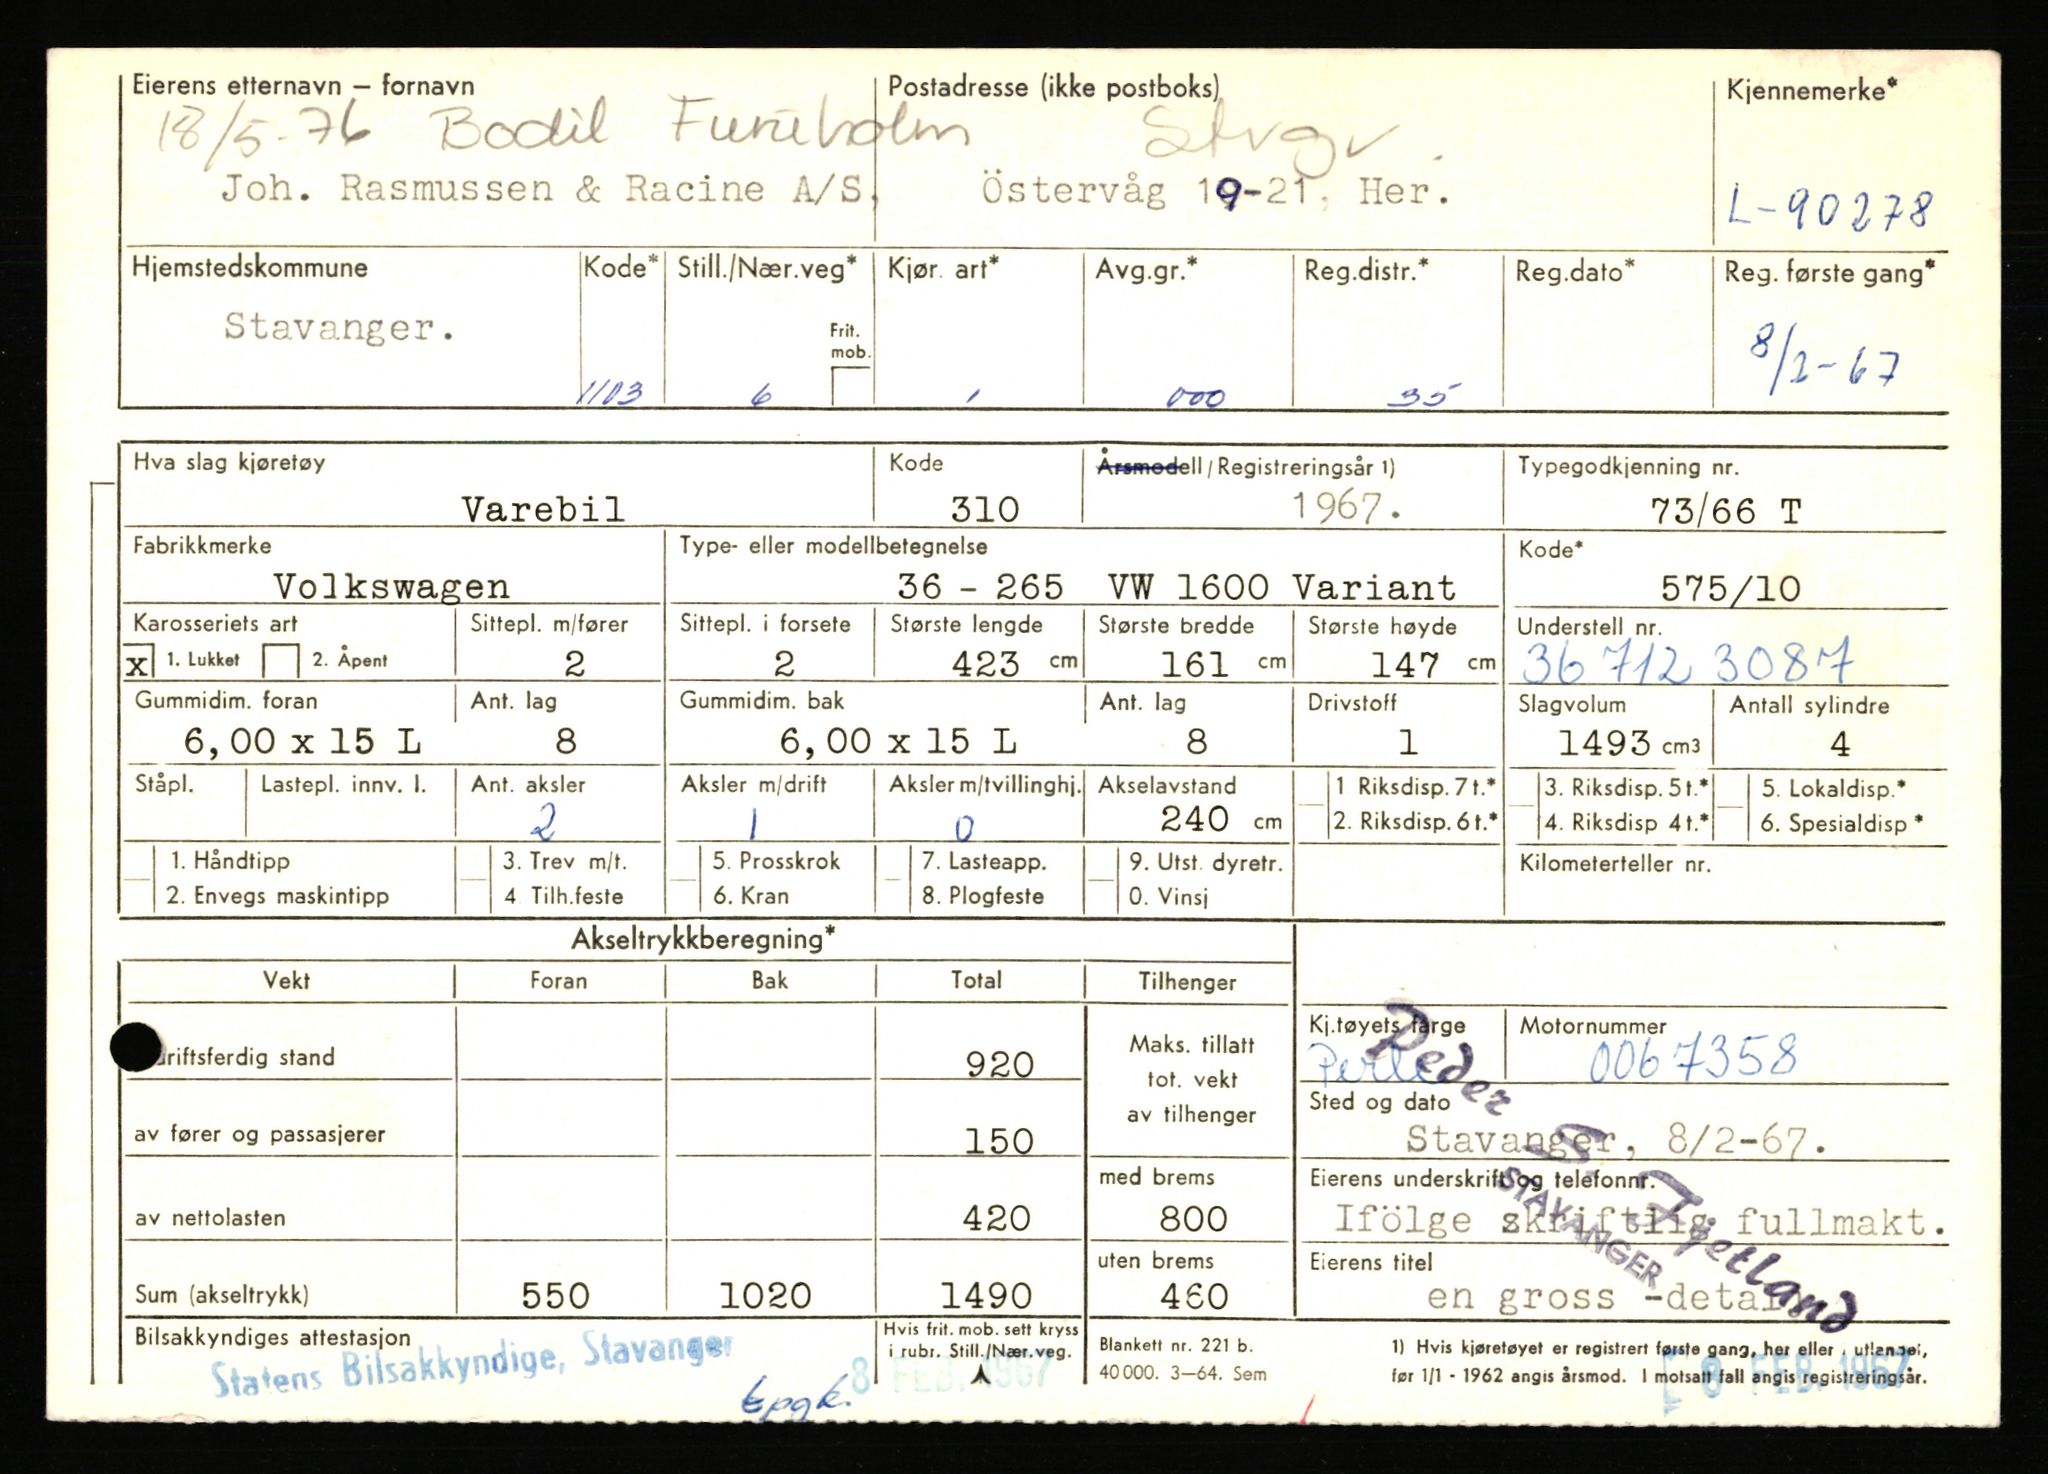 Eierens etternavn — fornavn Postadresse (ikke postboks) Kjennemerke*
18/5-76 Bodil Furuholm Stvgr.
Joh. Rasmussen & Racine A/S, Östervåg 19-21, Her. L-90278
Hjemstedskommune Kode* Still./Nær.veg* Kjør. art* Avg.gr.* Reg.distr.* Reg.dato* Reg. første gang*
Stavanger. Frit. mob. 8/2-67
1103 6 1 000 35
Hva slag kjøretøy Kode Årsmodell/Registreringsår 1) Typegodkjenning nr.
Varebil 310 1967. 73/66 T
Fabrikkmerke Type- eller modellbetegnelse Kode*
Volkswagen 36 - 265 VW 1600 Variant 575/10
Karosseriets art Sittepl. m/fører Sittepl. i forsete Største lengde Største bredde Største høyde Understell nr.
x 1. Lukket 2. Åpent 2 2 423 cm 161 cm 147 cm 367123087
Gummidim. foran Ant. lag Gummidim. bak Ant. lag Drivstoff Slagvolum Antall sylindre
6,00 x 15 L 8 6,00 x 15 L 8 1 1493 cm3 4
Ståpl. Lastepl. innv. l. Ant. aksler Aksler m/drift Aksler m/tvillinghj. Akselavstand 1 Riksdisp. 7 t.* 3. Riksdisp. 5 t.* 5. Lokaldisp.*
2 1 0 240 cm 2. Riksdisp. 6 t.* 4. Riksdisp 4 t.* 6. Spesialdisp*
1. Håndtipp 3. Trev m/t. 5. Prosskrok 7. Lasteapp. 9. Utst. dyretr. Kilometerteller nr.
2. Envegs maskintipp 4 Tilh.feste 6. Kran 8. Plogfeste 0. Vinsj
Akseltrykkberegning*
Vekt Foran Bak Total Tilhenger
Kj.tøyets farge Motornummer
driftsferdig stand 920 Maks. tillatt tot. vekt av tilhenger Perle 0067358
Sted og dato
av fører og passasjerer 150 Stavanger, 8/2-67.
med brems Eierens underskrift og telefonnr.
av nettolasten 420 800 Ifölge skriftlig fullmakt.
uten brems Eierens titel
Sum (akseltrykk) 550 1020 1490 460 en gross -detalj
Peder S. Tjetland
STAVANGER
Bilsakkyndiges attestasjon Hvis frit. mob. sett kryss i rubr. Still./Nær.veg. Blankett nr. 221 b. 1) Hvis kjøretøyet er registrert første gang, her eller i utlandet,
Statens Bilsakkyndige, Stavanger 8 FEB. 1967 40 000. 3—64. Sem før 1/1 - 1962 angis årsmod. I motsatt fall angis registreringsår.
8 FEB. 1967